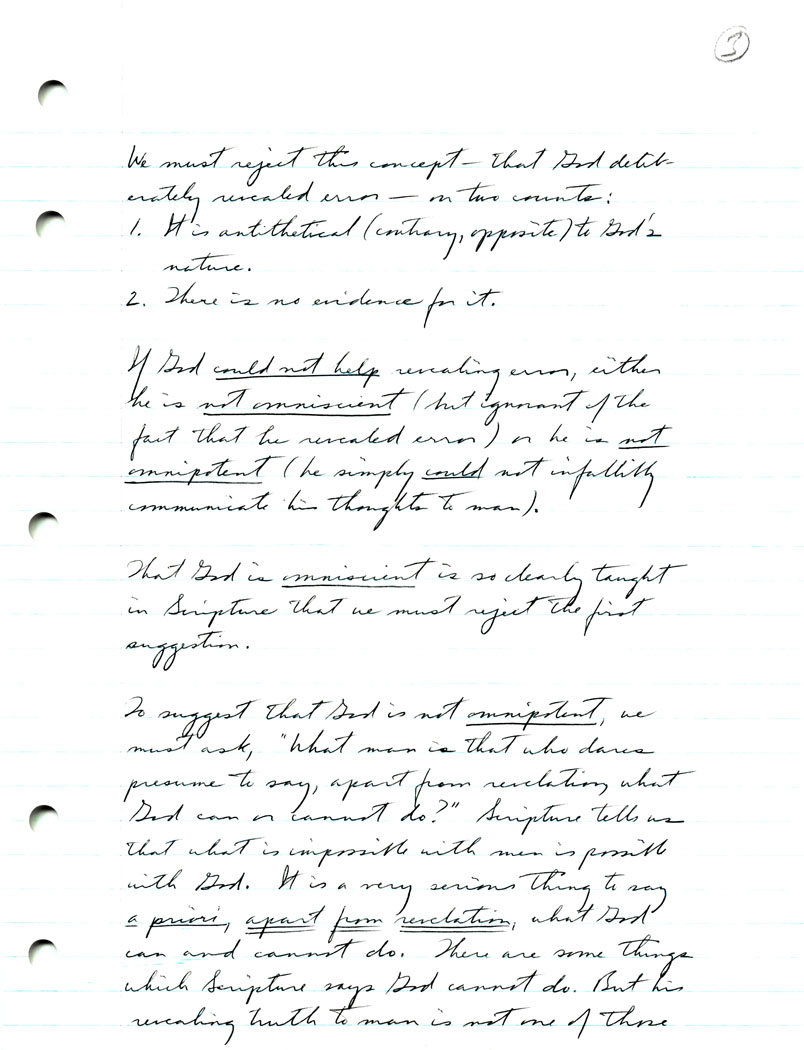 3
We must reject this concept — that God delib-
erately revealed error — on two counts:
1. It is antithetical (contrary, opposite) to God's
nature.
2. There is no evidence for it.
If God could not help revealing error, either
he is not omniscient (but ignorant of the
fact that he revealed error) or he is not
omnipotent (he simply could not infallibly
communicate his thoughts to man).
That God is omniscient is so clearly taught
in Scripture that we must reject the first
suggestion.
To suggest that God is not omnipotent, we
must ask, "What man is that who dares
presume to say, apart from revelation, what
God can or cannot do?" Scripture tells us
that what is impossible with men is possible
with God. It is a very serious thing to say
a priori, apart from revelation, what God
can and cannot do. There are some things
which Scripture says God cannot do. But his
revealing truth to man is not one of those